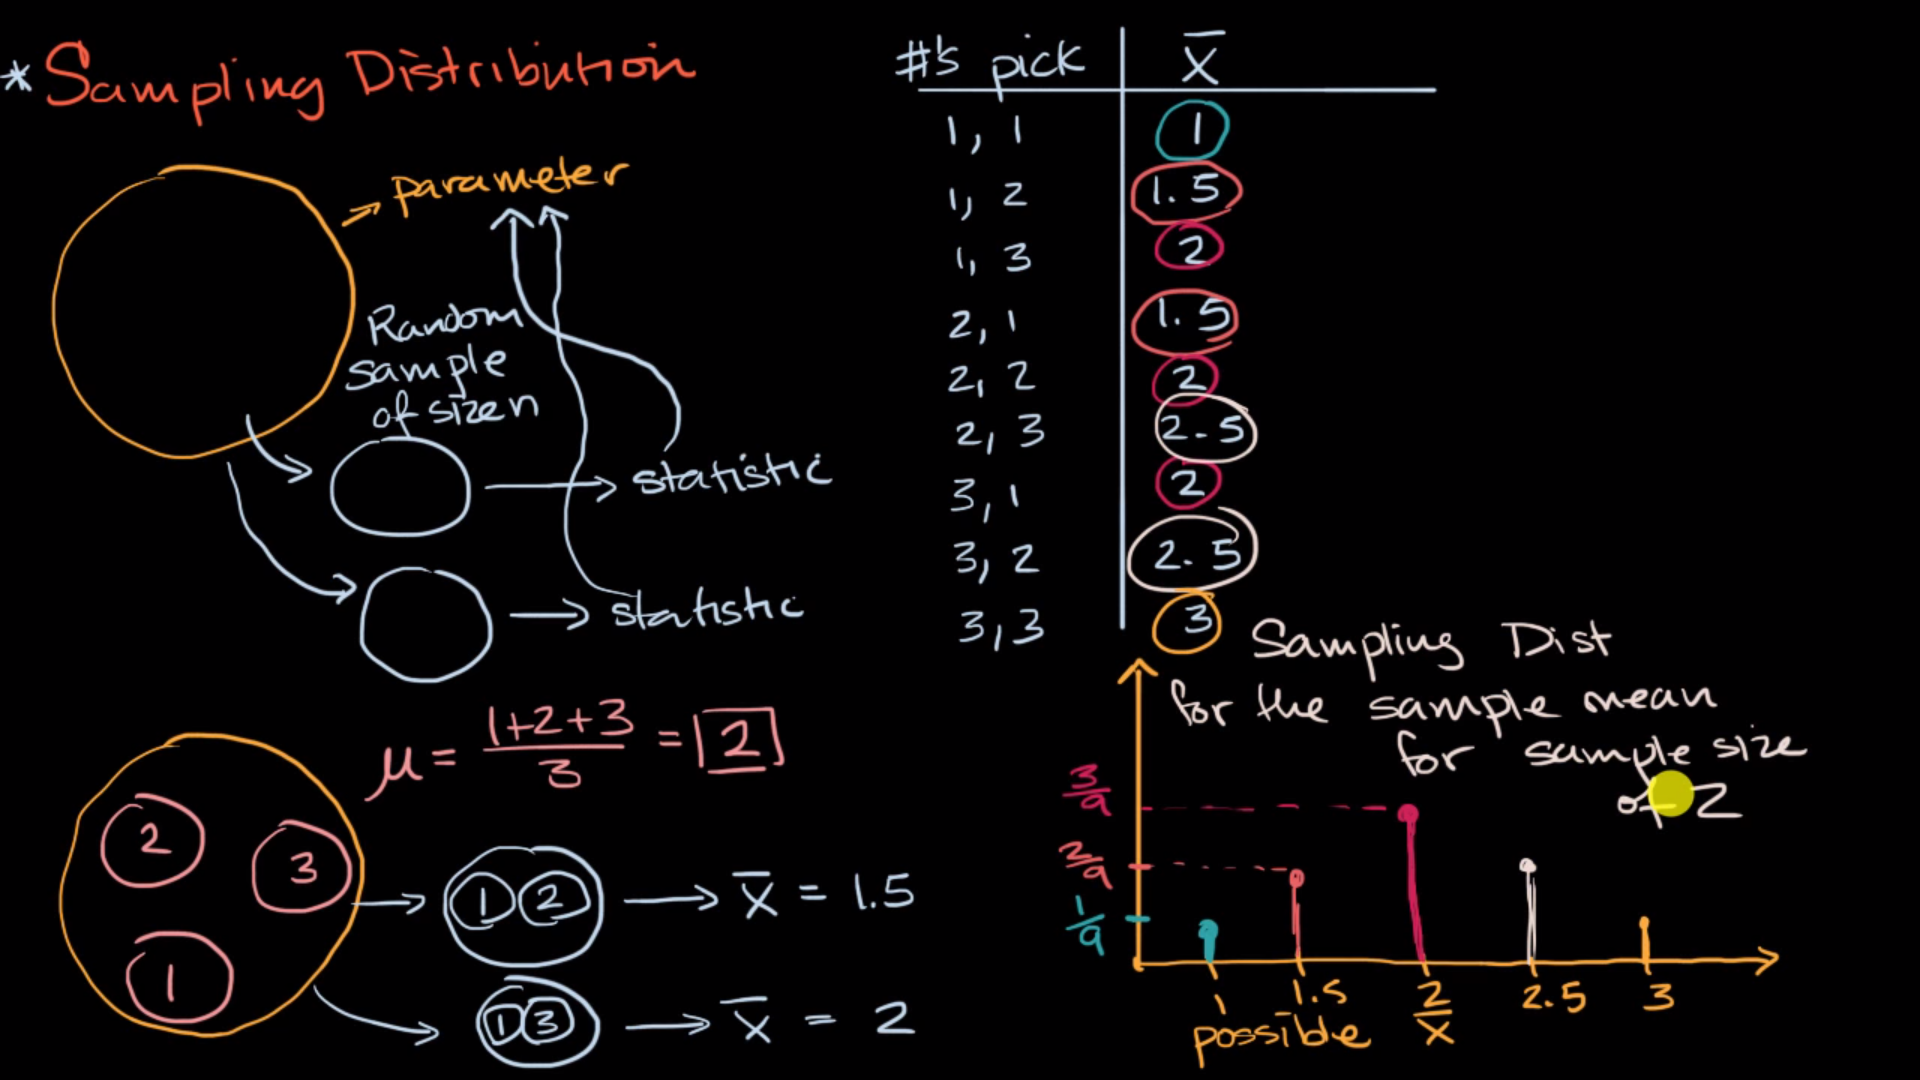 * Sampling Distribution
→ parameter
Random
sample
of size n
→ statistic
→ statistic
μ = (1+2+3)/3 = 2
2
3
1
1 2 → x̄ = 1.5
1 3 → x̄ = 2
#'s pick | x̄
1, 1 | 1
1, 2 | 1.5
1, 3 | 2
2, 1 | 1.5
2, 2 | 2
2, 3 | 2.5
3, 1 | 2
3, 2 | 2.5
3, 3 | 3
Sampling Dist
for the sample mean
for sample size
of 2
3/9
2/9
1/9
1 1.5 2 2.5 3
possible x̄